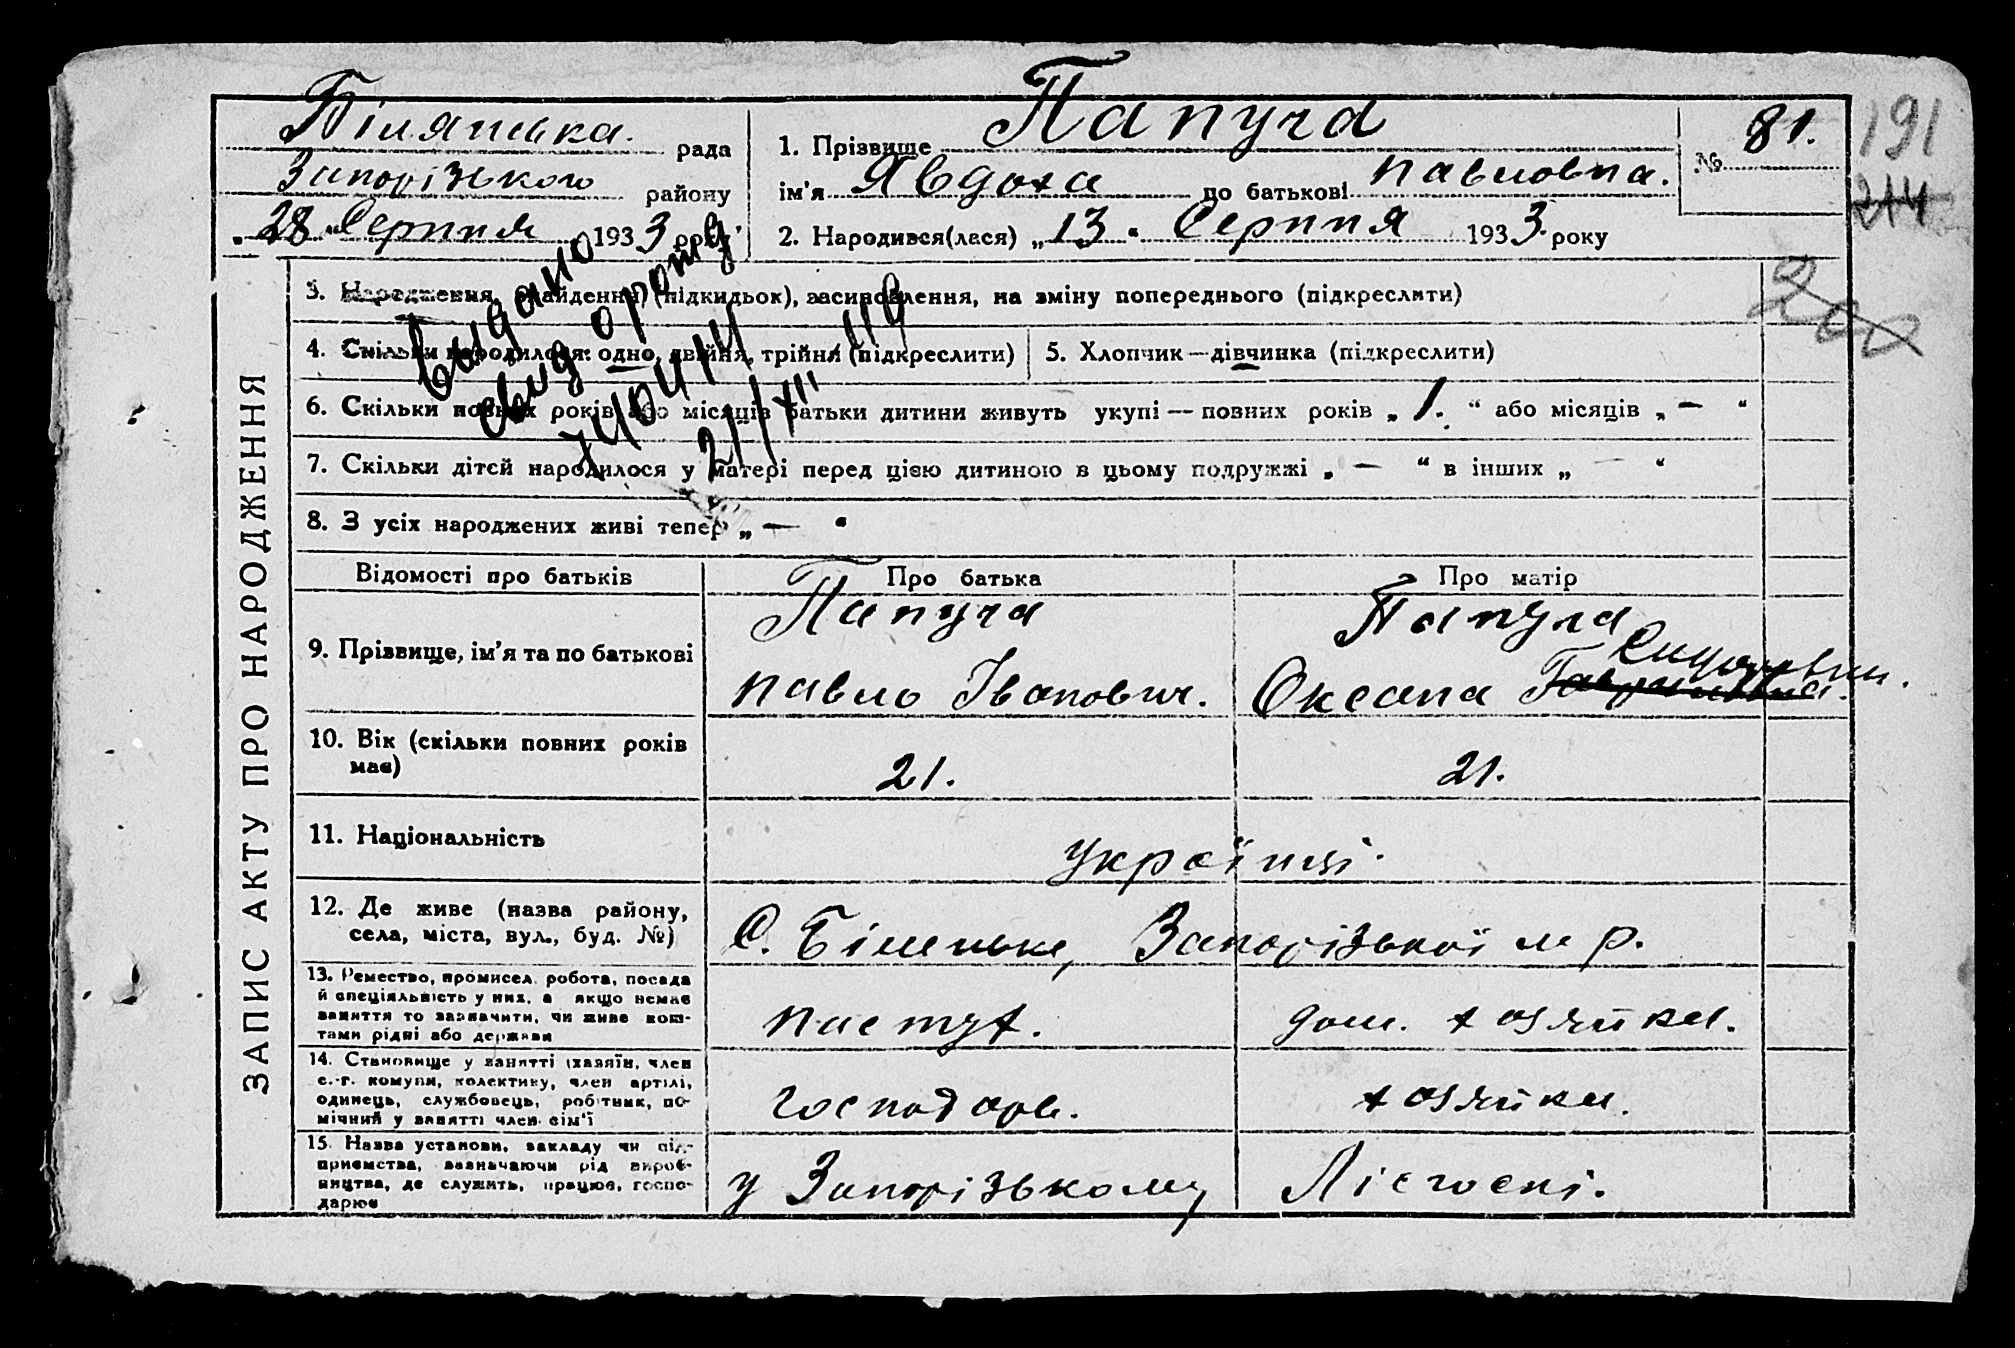 Білянська рада
Запорізького району
„28“ Серпня 1933 року
1. Прізвище Папуча
ім'я Явдоха по батькові Павловна.
2. Народився(лася) „13“ Серпня 1933 року
№ 81.
191
214
200
ЗАПИС АКТУ ПРО НАРОДЖЕННЯ
3. Народження, знайдення (підкидьок), засиновлення, на зміну попереднього (підкреслити)
4. Скільки народилося: одно, двійня, трійня (підкреслити)
5. Хлопчик—дівчинка (підкреслити)
6. Скільки повних років або місяців батьки дитини живуть укупі — повних років „1.“ або місяців „—“
7. Скільки дітей народилося у матері перед цією дитиною в цьому подружжі „—“ в інших „—“
8. З усіх народжених живі тепер „—“
Видано
свид
Відомості про батьків
Про батька
Про матір
9. Прізвище, ім'я та по батькові
Папуча
Павло Іванович.
Папуча
Оксана
10. Вік (скільки повних років
має)
21.
21.
11. Національність
українці.
12. Де живе (назва району,
села, міста, вул., буд. №)
С. Біленьке, Запорізької м р.
13. Ремество, промисел, робота, посада
й спеціяльність у них, а якщо немає
заняття то зазначити, чи живе кош-
тами рідні або держави
пастух.
дом. хозяйка.
14. Становище у занятті (хазяїн, член
с.-г. комуни, колективу, член артілі,
одинець, службовець, робітник, по-
мічний у занятті член сім'ї
господарь.
хозяйка.
15. Назва установи, закладу чи під-
приємства, зазначаючи рід вироб-
ництва, де служить, працює, госпо-
дарює
у Запорізькому Лісгоспі.